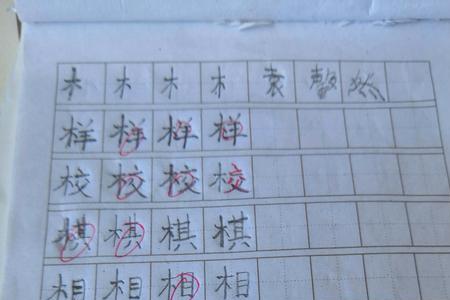 木 木 木 木 袁
样 样 样 样
校 校 校 校
棋 棋 棋 棋
相 相 相 相